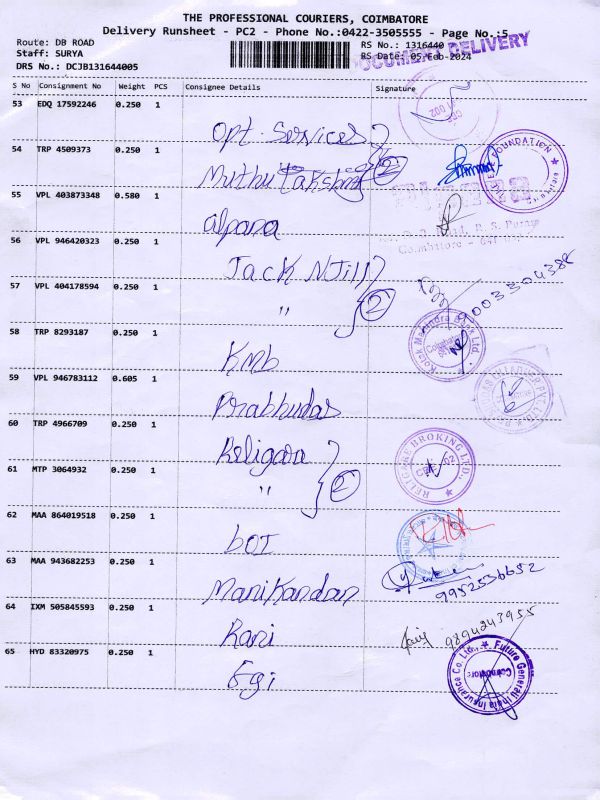 THE PROFESSIONAL COURIERS, COIMBATORE
Delivery Runsheet - PC2 - Phone No.:0422-3505555 - Page No.:5
Route: DB ROAD
RS No.: 1316440
DOCUMENT DELIVERY
Staff: SURYA
RS Date: 05-Feb-2024
DRS No.: DCJB131644005
S No Consignment No Weight PCS Consignee Details Signature
53 EDQ 17592246 0.250 1
Opt. Services
54 TRP 4509373 0.250 1
Muthu Lakshmi
2
FOUNDATION
55 VPL 403873348 0.580 1
alpana
R. S. Puram
Coimbatore - 641
56 VPL 946420323 0.250 1
Jack N Jill
57 VPL 404178594 0.250 1
"
2
9003304388
58 TRP 8293187 0.250 1
KMB
Kotak Mahindra Bank Ltd.
Coimbatore
59 VPL 946783112 0.605 1
Prabhudas
60 TRP 4966709 0.250 1
Religare
RELIGARE BROKING LTD.
CBE - 02
61 MTP 3064932 0.250 1
"
2
62 MAA 864019518 0.250 1
BOI
63 MAA 943682253 0.250 1
Manikandan
9952536652
64 IXM 505845593 0.250 1
Rani
9894243955
65 HYD 83320975 0.250 1
Fgi
Future Generali India Insurance Co. Ltd.,
Coimbatore